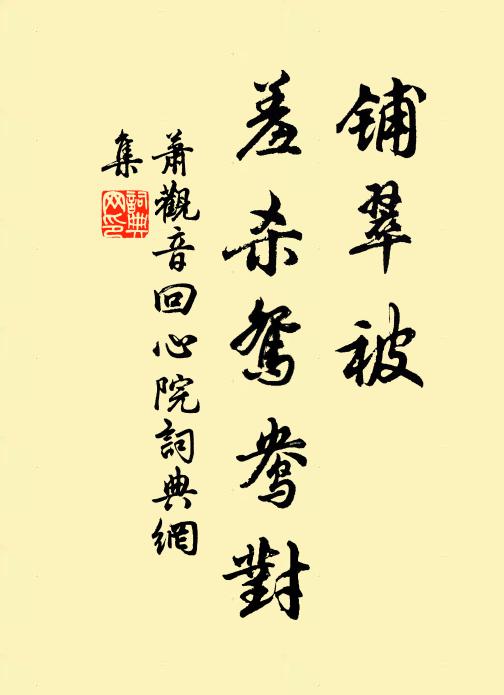 铺翠被
羞杀鸳鸯對
萧觀音回心院詞典網
集
詞典网印